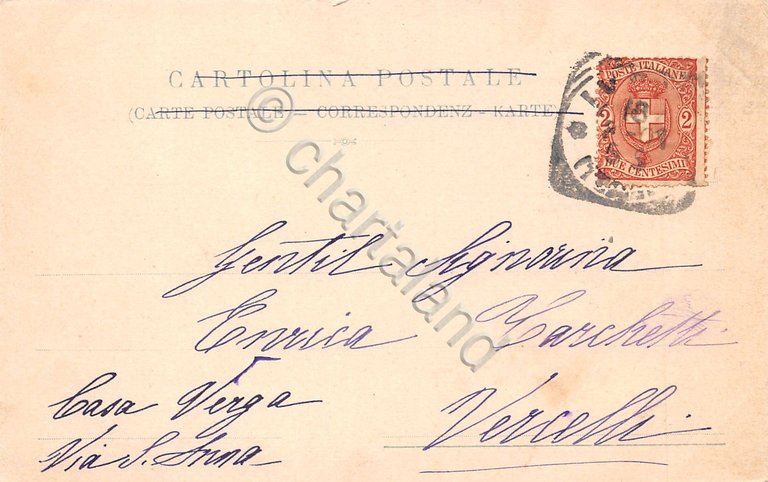 CARTOLINA POSTALE
(CARTE POSTALE - CORRESPONDENZ - KARTE)
POSTE ITALIANE
2 2
DUE CENTESIMI
© chartaland
Gentil Signorina
Enrica Tarchetti
Casa Verga
Vercelli.
Via S. Anna